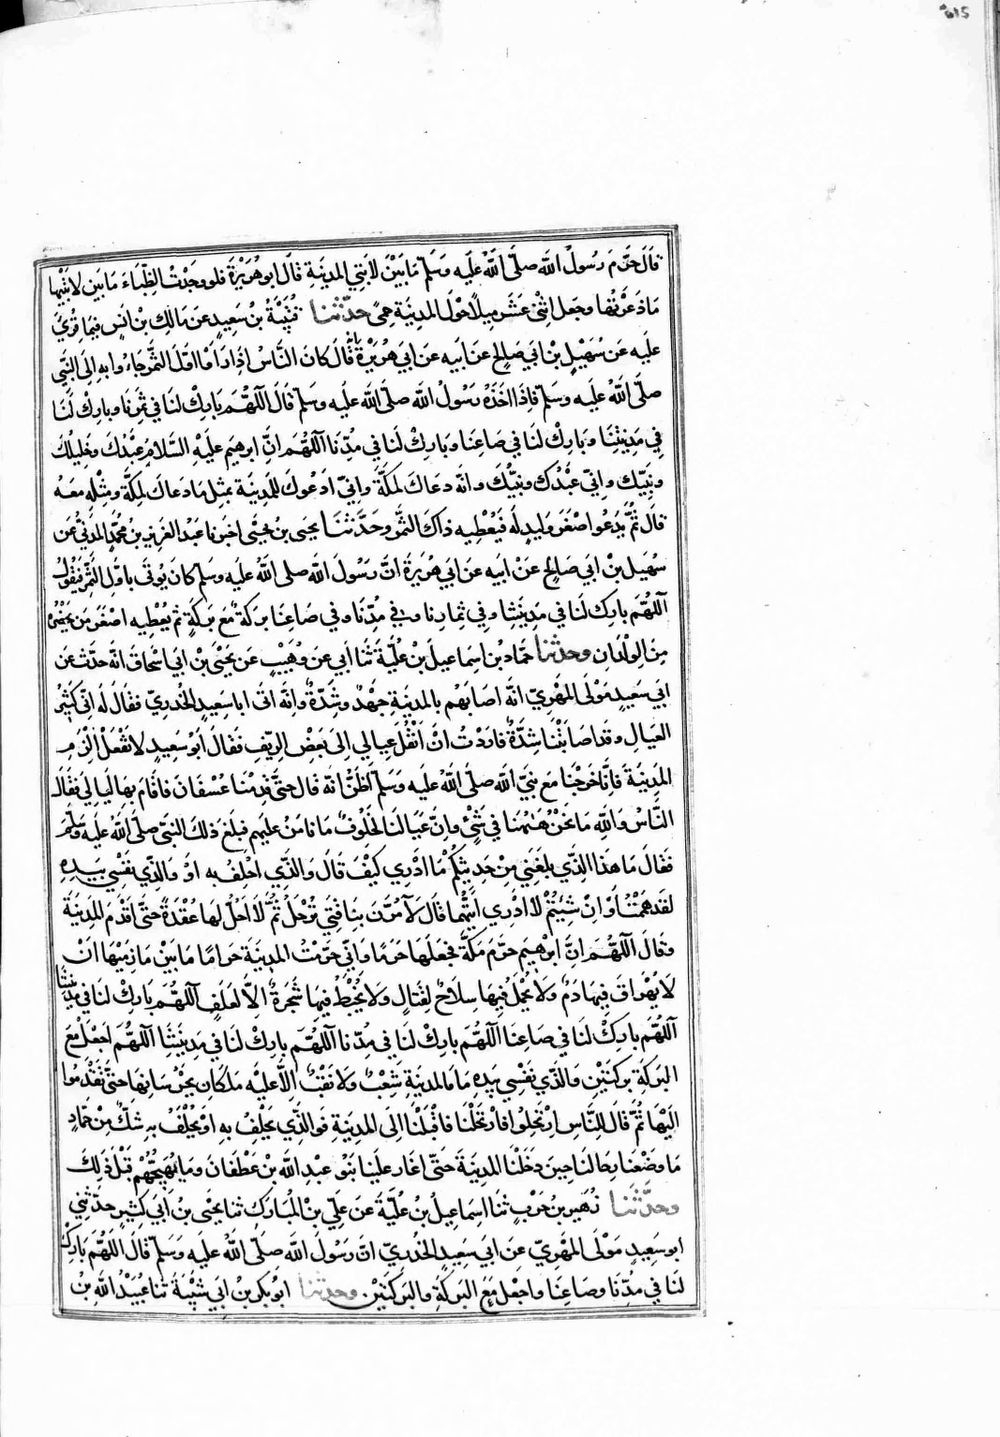 قَالَ حَرَّمَ رَسُولُ اللَّه صلَّى اللَّهُ عليَه وَسَلّمَ مَابَيْنَ لَابَتِي المدينَةِ قالَ ابوهُرَيْرَةَ فلو وجَدْتُ الظِّبَاءَ مَابَين لابتَيْهَا
مَاذَعَرْتُهَا وجعَل اثْنَى عَشَرَ مِيلًا حَوْلَ المدينَةِ حِمًى حدَّثَنا قُتَيْبَةُ بْن سَعِيدٍ عنَ مَالِكِ بْن انَسٍ فيمَا قُرِئَ
عليَه عَنْ سُهَيْلِ بْن ابَي صَالِحٍ عَنْ ابَيه عَن ابَي هُرَيْرَةَ أنَّه قَالَ كانَ النَّاسُ إذَا رَاَوْا اوَّلَ الثَّمَرِ جَاءُوا به الَى النبَّي
صلَّى اللَّهُ عليَه وسَلّمَ فَاِذَا اخَذَهُ رَسُولُ اللَّه صلَّى اللَّه عليَه وسَلّمَ قَالَ اللَّهُمَّ بَارِكْ لنَا في ثمَرِنَا وبَارِكْ لَنَا
فِي مَدِينَتِنَا وَبَارِكْ لنَا في صَاعِنَا وَبَارِكْ لنَا فِي مُدِّنَا اللَّهُمَّ انَّ ابرهيمَ عليَهِ السَّلَامُ عَبْدُكَ وخَلِيلُكَ
ونَبِيُّكَ وانِّي عَبْدُكَ ونبيُّكَ وانَّه دعَاكَ لمكَّةَ وانِّي ادَعُوكَ للمَدِينَةِ بمثِلِ مَا دعَاكَ لمِكَّةَ ومِثْلِهِ معَهُ
قَال ثُمَّ يَدعُو اصْغَرَ وَلِيدٍ لَه فَيُعْطِيه ذاكَ الثمَّرَ وحَدَّثَنَا يحيَى بن يَحيْىَ اخبَرنا عبَدُ العَزيزِ بنُ محُمَّدٍ المَدَنيُّ عَن
سُهَيْلِ بْن ابَي صَالِحٍ عَنْ ابَيه عَن ابَي هُرَيرَةَ انَّ رَسُولَ اللَّه صلى اللَّهُ عليَه وسَلمَ كانَ يُوتَى باوَّلِ الثمَرِ فيَقُولُ
اللَّهُمَّ بارِك لنَا في مَدِينَتِنَا وفِي ثِمارِنا وفِي مُدِّنَا وفي صَاعِنَا بَرَكَةً مَعَ بَرَكَةٍ ثمَّ يُعْطِيه اصْغَرَ مَن يَحْضُرُهُ
مِنَ الوِلْدَانِ وحَدثنَا حمَّادُ بن اسِمَاعيلَ بْنِ عُلَيَّةَ ثَنَا ابَي عَن وُهَيْبٍ عَن يَحْيَى بْنِ ابَي اسْحَاقَ انَّه حدَّثَ عَن
ابَي سَعِيدٍ مَوْلَى المَهْرِيِّ انَّه اصَابَهُم بالمدينَةِ جَهْدٌ وشِدَّةٌ وانَّه اتَى ابا سَعِيدٍ الخُدْرِيَّ فقَالَ لَه انِّي كَثِيرُ
العيَالِ وقَد اصَابَتْنَا شِدَّةٌ فارَدْتُ انْ انْقُلَ عِيَالِي الَى بَعضِ الرِّيفِ فقَالَ ابُو سَعِيدٍ لا تَفْعَلْ الْزَمِ
المَدِينَةَ فإنَّا خرَجْنَا مَع نبَيِّ اللَّه صلَى اللَّهُ عليَه وسَلّمَ اَظُنُّ انَّه قَال حتَّى قدِمْنَا عُسْفَانَ فَاقَامَ بِهَا ليَالِيَ فقَالَ
النَّاسُ واللَّه مَا نَحْنُ هٰهُنَا في شَيْءٍ وإنَّ عيَالَنَا لَخُلُوفٌ مَا نَامَنُ عليَهِم فبلَغَ ذلكَ النبيَّ صلَّى اللَّهُ عليَه وسَلّمَ
فقَالَ مَا هَذَا الذَّي بلَغَنِي مِنْ حَدِيثِكُمْ مَا ادْرِي كيَفْ قَالَ وَالذَّي احْلِفُ بِه اوْ وَالذَّي نَفْسي بيَدِهِ
لقَد هَمَمْتُ اَوْ اِنْ شِئْتُمْ لَا ادْرِي ايَّتَهُمَا قالَ لَآمُرَنَّ بِنَاقَتِي تُرْحَلُ ثُمَّ لَا اَحُلُّ لَهَا عُقْدَةً حتَّى اَقْدَمَ المدِينَةَ
وقَالَ اللَّهُمَّ انَّ ابْرهِيمَ حرَّمَ مَكَّةَ فجَعلَهَا حَرَمًا وانِّي حَرَّمْتُ المدِينَةَ حرَامًا مَا بَيْنَ مَازِمَيْهَا انْ
لَا يُهْرَاقَ فِيهَا دَمٌ وَلَا يُحْمَلَ فِيهَا سِلَاحٌ لِقتَالٍ وَلَا يُخْبَطَ فِيهَا شَجَرَةٌ اِلَّا لعَلَفٍ اللَّهُمَّ بَارِكْ لنَا في مدِينَتِنَا
اللَّهُمَّ بَارِكْ لنَا في صَاعِنَا اللَّهُمَّ بَارِكْ لنَا في مُدِّنَا اللَّهُمَّ بَارِكْ لَنَا في مَدِينَتِنَا اللَّهُمَّ اجْعَلْ مَعَ
البَرَكَةِ بَرَكَتَيْنِ وَالذَّي نَفْسِي بيَدِهِ مَا مِنَ المدِينَةِ شِعْبٌ وَلَا نَقْبٌ اِلَّا عليَه مَلَكَانِ يَحرُسَانِهَا حتَّى تَقْدَمُوا
الَيْهَا ثُمَّ قَالَ للِنَّاسِ ارْتَحِلُوا فارْتَحَلْنَا فَاَقْبَلْنَا اِلَى المَدِينَةِ فَوَالذَّي نحَلِفُ بِهِ اَوْ يُحْلَفُ بِهِ شَكَّ مِنْ حَمَّادٍ
مَا وضَعْنَا رِحَالَنَا حِينَ دَخَلْنَا المَدِينَةَ حَتَّى اغَارَ عَليَنَا بَنُو عبْدِ اللَّه بْن غَطَفَانَ ومَا يُهَيِّجُهُمْ قَبْلَ ذَلِكَ
وحَدَّثَنَا زُهَيرُ بْن حَرْبٍ ثَنَا اسِمَاعيِلُ بْن عُلَيَّةَ عَن عَلِيِّ بْنِ المُبَارَكِ ثنا يحيَى بن ابَي كَثِيرٍ حَدَّثَنِي
ابو سَعِيدٍ مَوْلَى المَهْرِيِّ عَنِ ابَي سَعيِدٍ الخُدْرِيِّ انَّ رَسُولَ اللَّه صَلَّى اللَّهُ عليَه وَسَلّمَ قالَ اللَّهُمَّ بَارِكْ
لنا في مُدِّنَا وصَاعِنَا واجْعَل مَعَ البَرَكَةِ بَرَكَتَيْنِ وحَدثنَا ابُو بكرِ بْن ابَي شَيْبَةَ ثنا عُبَيْدُ اللَّهِ بْنُ